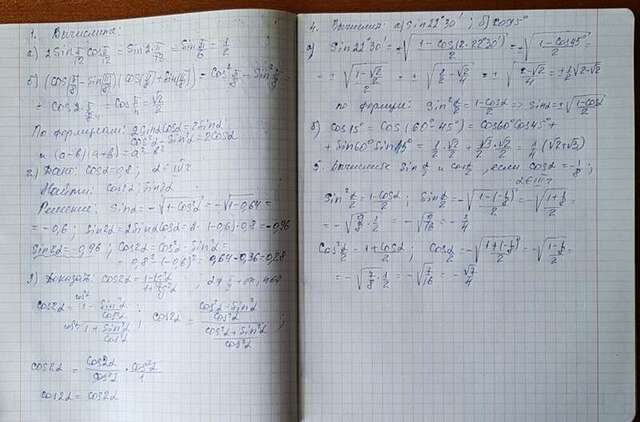 1. Вычислить:
а) 2Sin π/12 Cos π/12 = Sin 2·π/12 = Sin π/6 = 1/2
б) (Cos π/8 − Sin π/8)(Cos π/8 + Sin π/8) = Cos² π/8 − Sin² π/8 =
= Cos 2·π/8 = Cos π/4 = √2/2
По формулам: 2Sinαcosα = Sin2α
cos²α − Sin²α = cos2α
и (a-b)(a+b) = a²-b²
2.) Дано: cosα=0,8;
Найти: cos2α; sin2α
Решение: Sinα = -√1-cos²α = -√1-0,64 =
= -0,6; Sin2α = 2Sinαcosα = 2·(-0,6)·0,8 = -0,96
Sin2α = -0,96; Cos2α = cos²α - Sin²α =
= 0,8²-(-0,6)² = 0,64-0,36 = 0,28
3) Доказать: cos2α = 1-tg²α/1+tg²α,
cos2α = 1 - Sin²α/cos²α / 1 + Sin²α/cos²α; cos2α = cos²α-Sin²α/cos²α / cos²α+Sin²α/cos²α;
cos2α = Cos2α/Cos²α · cos²α/1
cos2α = cos2α
4. Вычислить: а) Sin22°30'; б) cos15°
а) Sin22°30' = √1-Cos(2·22°30')/2 = √1-Cos45°/2 =
= + √1-√2/2 / 2 = + √1/2 - √2/4 = + √2-√2/4 = + 1/2 √2-√2
по формуле: Sin² α/2 = 1-Cosα/2 => Sin α/2 = ±√1-Cosα/2
б) Cos15° = Cos(60°-45°) = Cos60°Cos45° +
+ Sin60°Sin45° = 1/2 · √2/2 + √3/2 · √2/2 =
5. Вычислить Sin α/2 и cos α/2, если Cosα = -1/8;
Sin² α/2 = 1-Cosα/2; Sin α/2 = -√1-(-1/8)/2 = -√1+1/8 / 2 =
= -√9/8 · 1/2 = -√9/16 = -3/4
Cos² α/2 = 1+cosα/2; Cos α/2 = -√1+(-1/8)/2 = -√1-1/8 / 2 =
= -√7/8 · 1/2 = -√7/16 = -√7/4